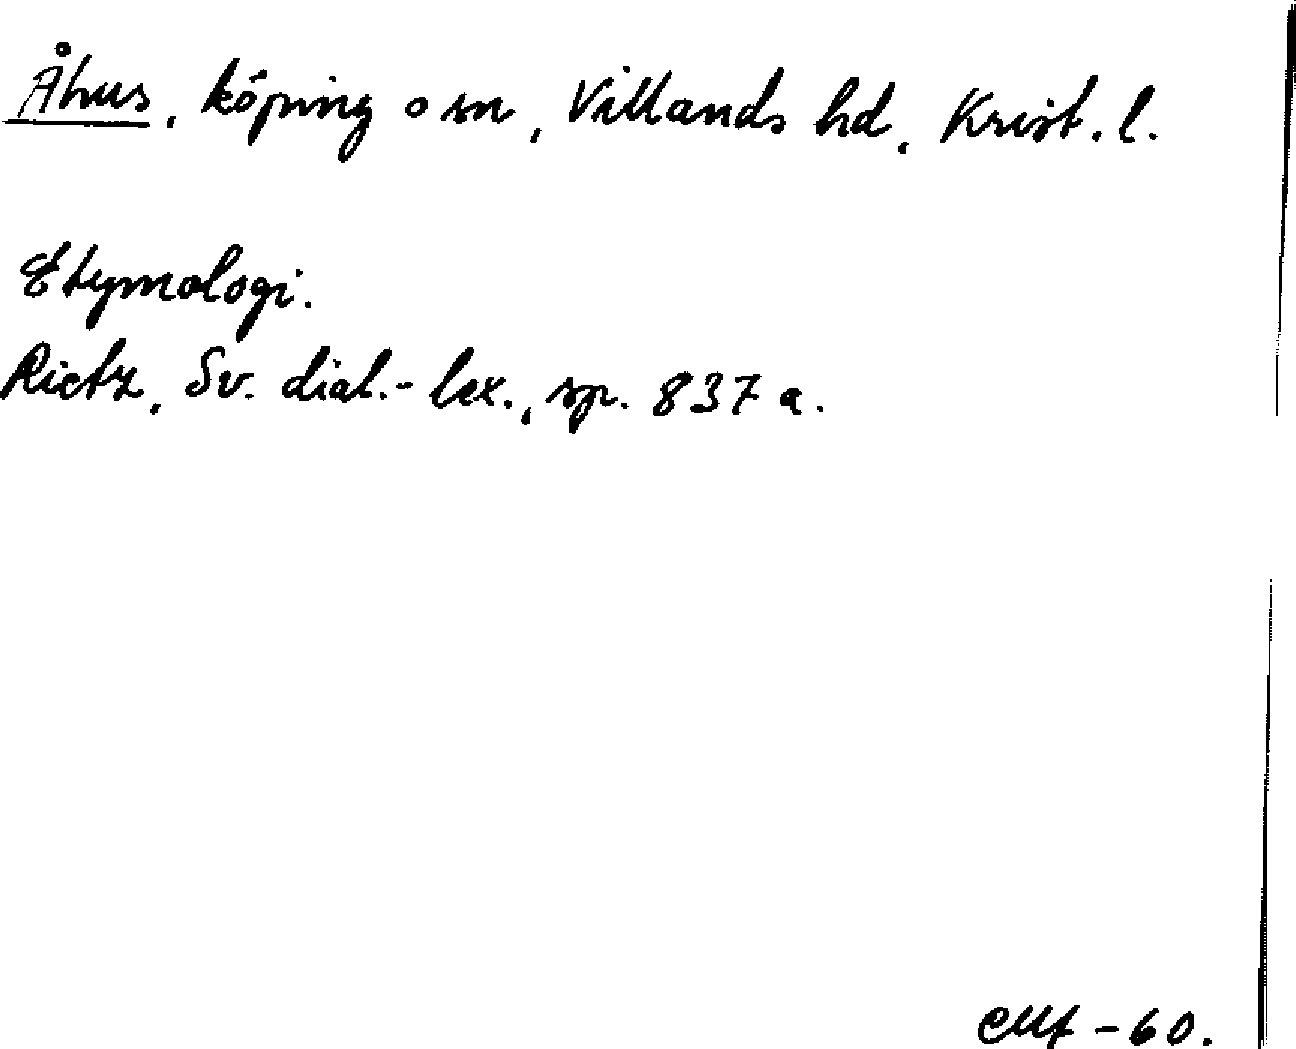 Åhus, köping o sn, Villands hd, Krist. l.
Etymologi.
Rietz, Sv. dial.-lex., sp. 837 a.
-60.